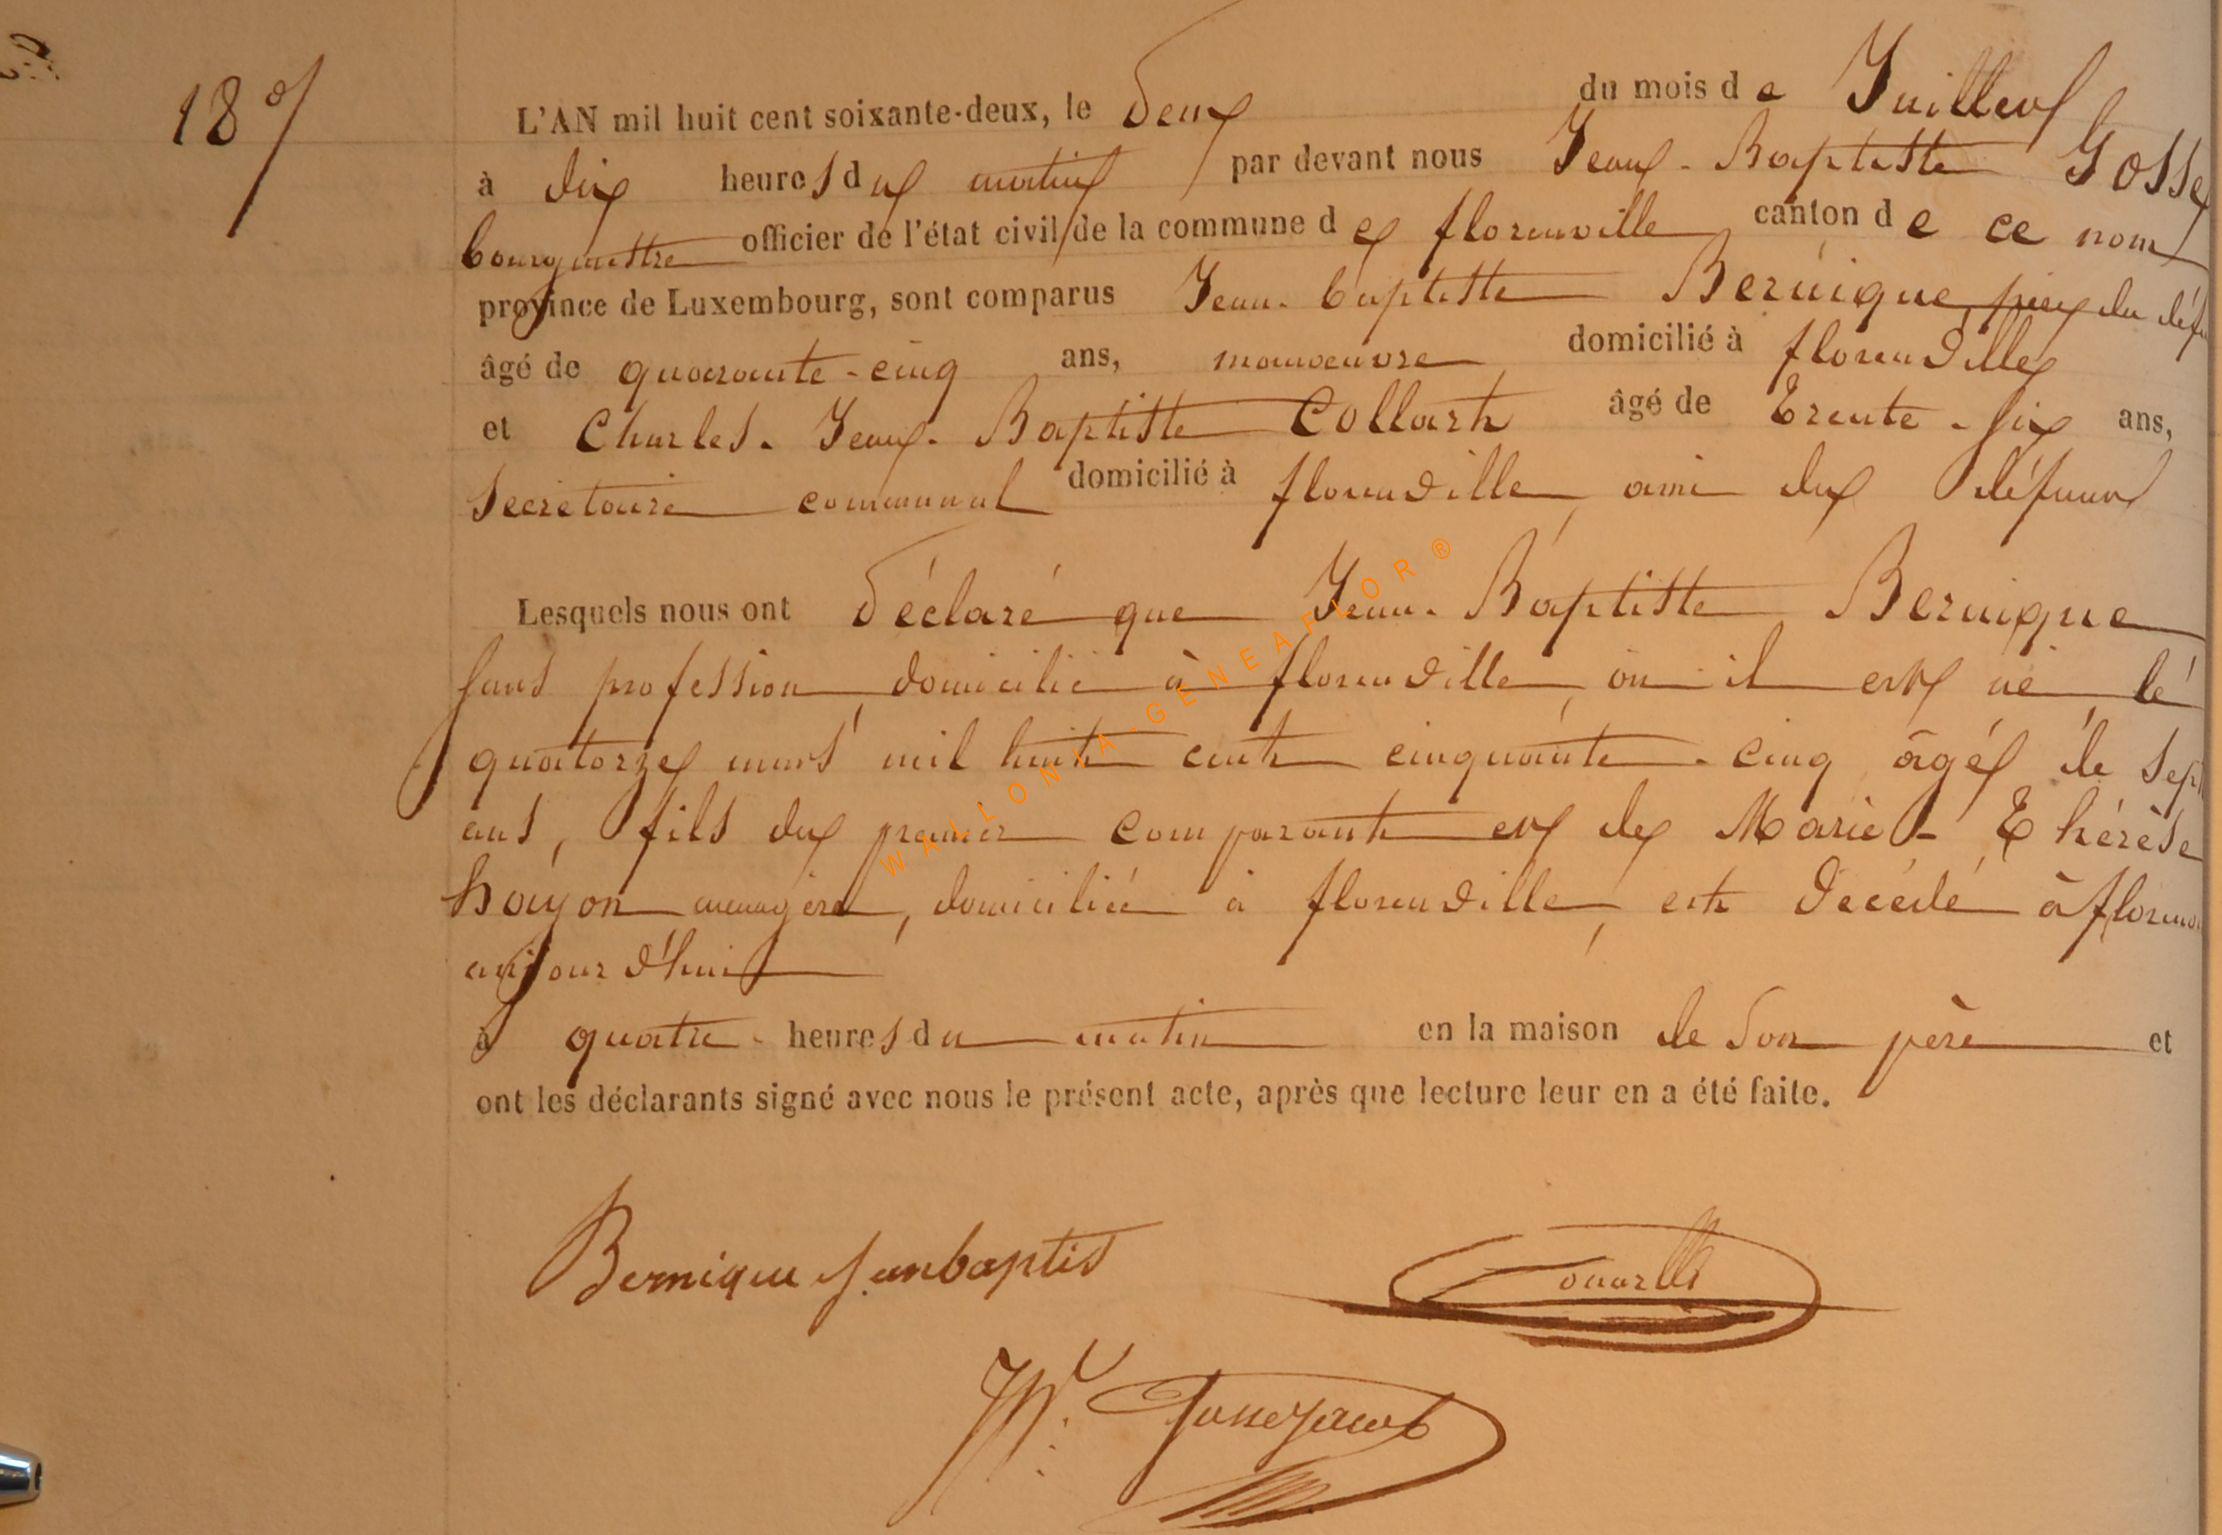 18°/
L'AN mil huit cent soixante-deux, le deux du mois de Juillet
à dix heures du matin par devant nous Jean-Baptiste Gosse
bourgmestre officier de l'état civil de la commune de florenville canton de ce nom
province de Luxembourg, sont comparus Jean-baptiste Bernique, père du défu
âgé de quarante-cinq ans, manoeuvre domicilié à florenville
et Charles-Jean-Baptiste Collart âgé de trente-six ans,
secrétaire communal domicilié à florenville, ami du défunt
Lesquels nous ont déclaré que Jean-Baptiste Bernique
sans profession, domicilié à florenville, où il est né le
quatorze mars mil huit cent cinquante-cinq âgé de sept
ans, fils du premier comparant et de Marie-Thérèse
hayon ménagère, domiciliée à florenville, est décédé à floren
aujourd'hui
à quatre heures du matin en la maison de son père et
ont les déclarants signé avec nous le présent acte, après que lecture leur en a été faite.
Bernique Jeanbaptis
WALLONIA-GENEAFLOR®